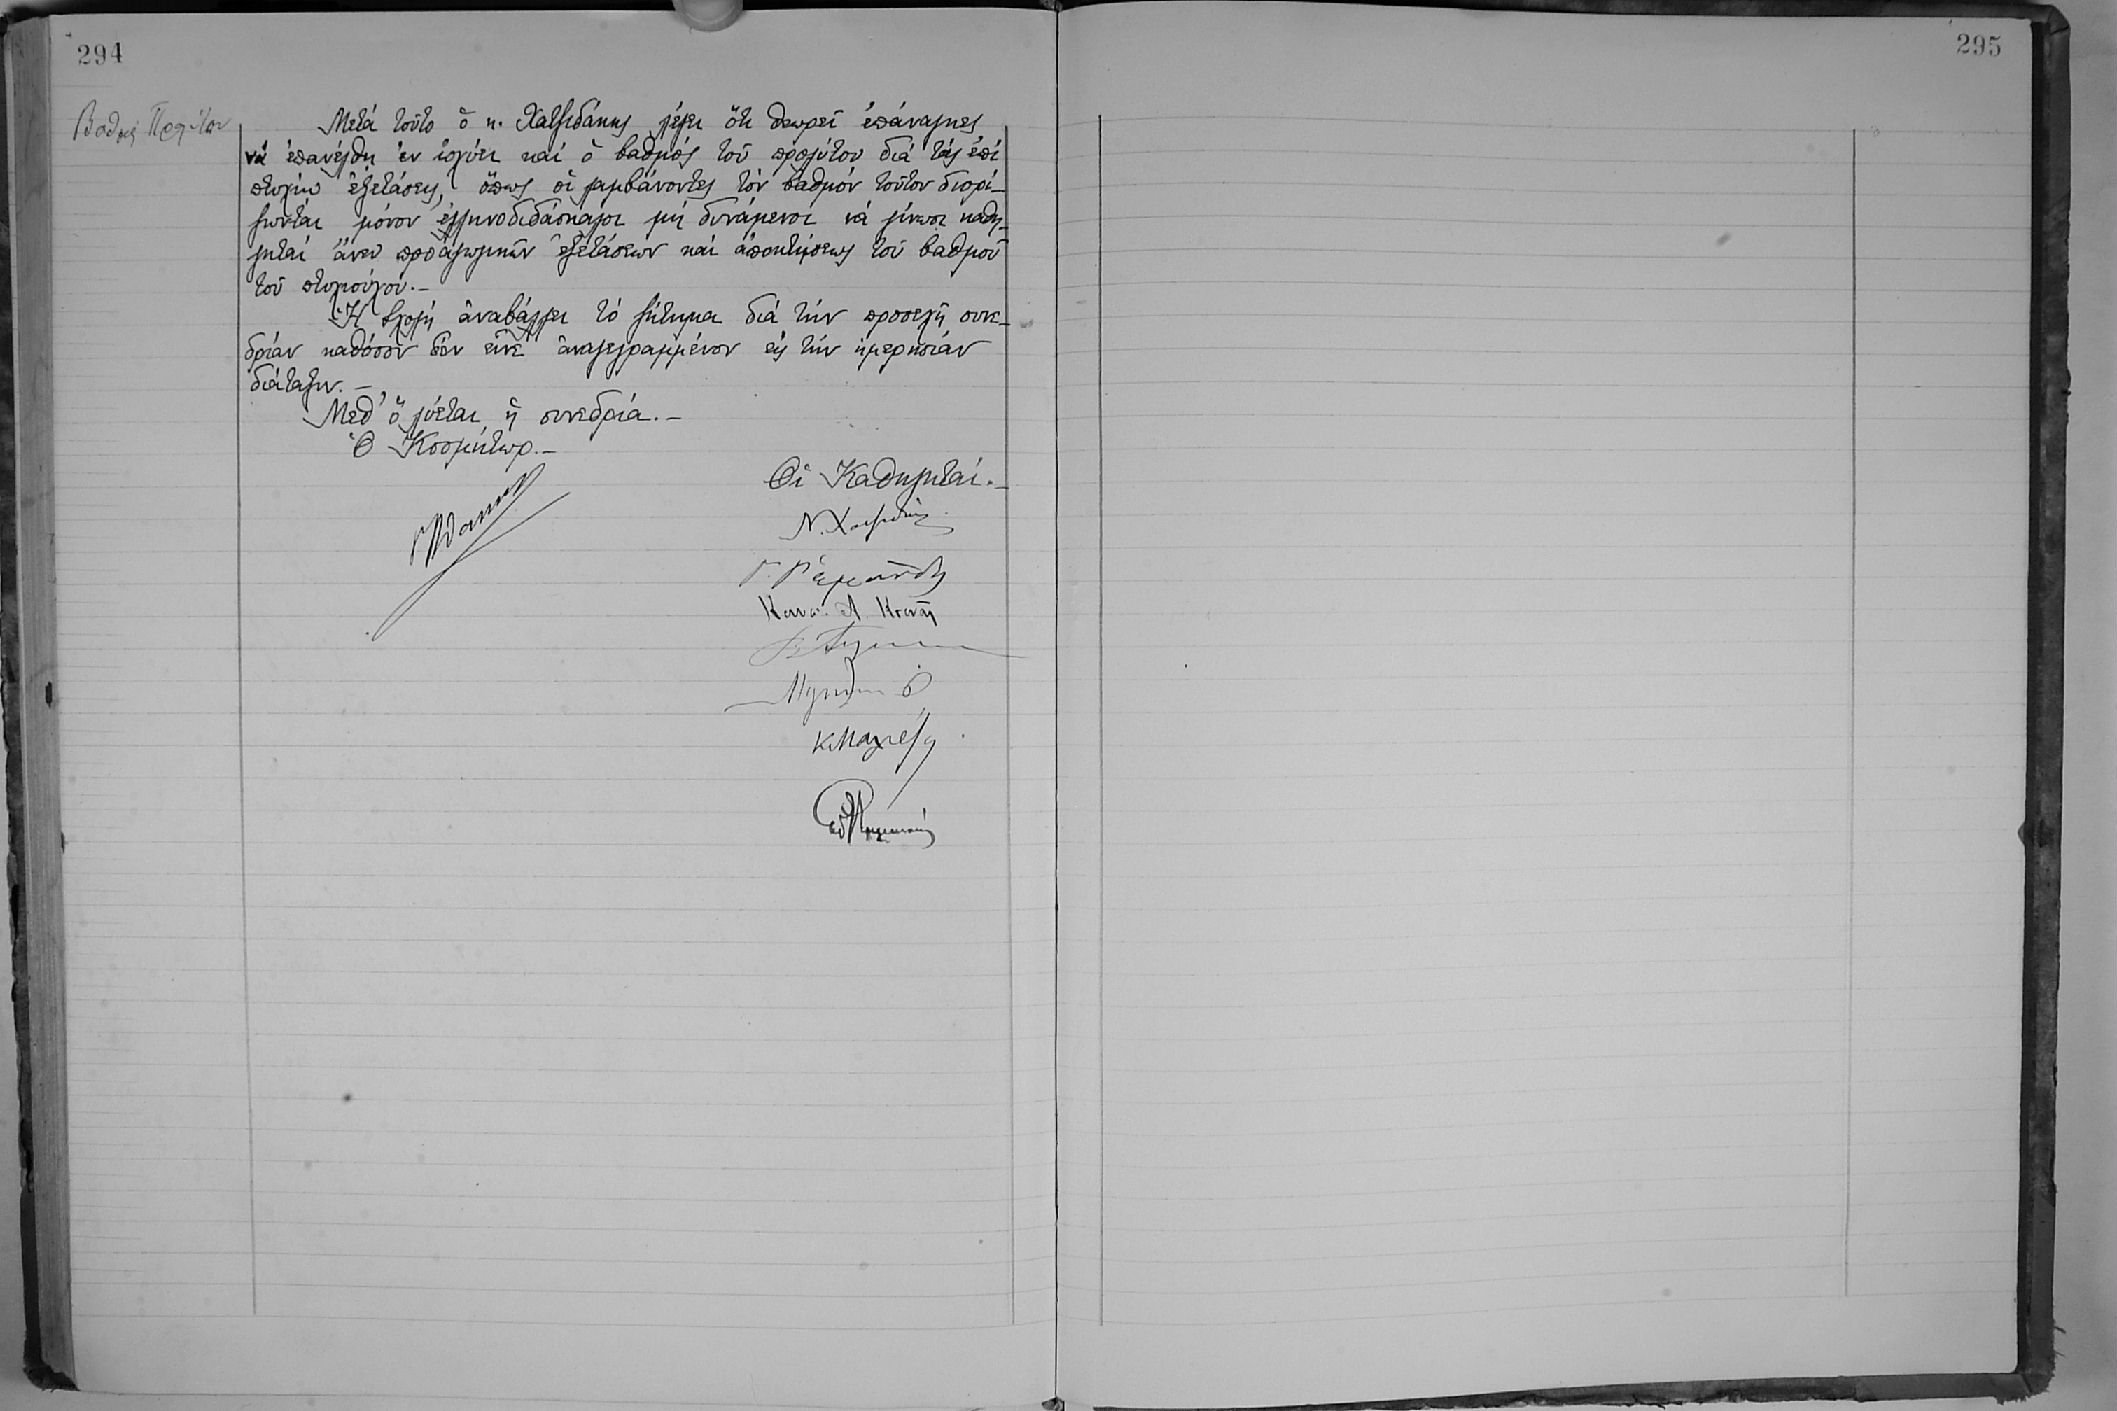 294
295
Βαθμὸς Προλύτου
Μετὰ τοῦτο ὁ κ. Χατζιδάκης λέγει ὅτι θεωρεῖ ἐπάναγκες
νὰ ἐπανέλθῃ ἐν ἰσχύει καὶ ὁ βαθμὸς τοῦ προλύτου διὰ τὰς ἐπὶ
πτυχίῳ ἐξετάσεις, ὅπως οἱ λαμβάνοντες τὸν βαθμὸν τοῦτον διορί-
ζωνται μόνον ἑλληνοδιδάσκαλοι μὴ δυνάμενοι νὰ γίνωσι καθη-
γηταὶ ἄνευ προαγωγικῶν ἐξετάσεων καὶ ἀποκτήσεως τοῦ βαθμοῦ
τοῦ πτυχιούχου.-
Ἡ Σχολὴ ἀναβάλλει τὸ ζήτημα διὰ τὴν προσεχῆ συνε-
δρίαν καθόσον δὲν εἶνε ἀναγεγραμμένον εἰς τὴν ἡμερησίαν
διάταξιν.-
Μεθ' ὃ λύεται ἡ συνεδρία.-
Ὁ Κοσμήτωρ.-
Οἱ Καθηγηταί.-
Ν. Χατζιδάκις
Κ Μαλτέζος